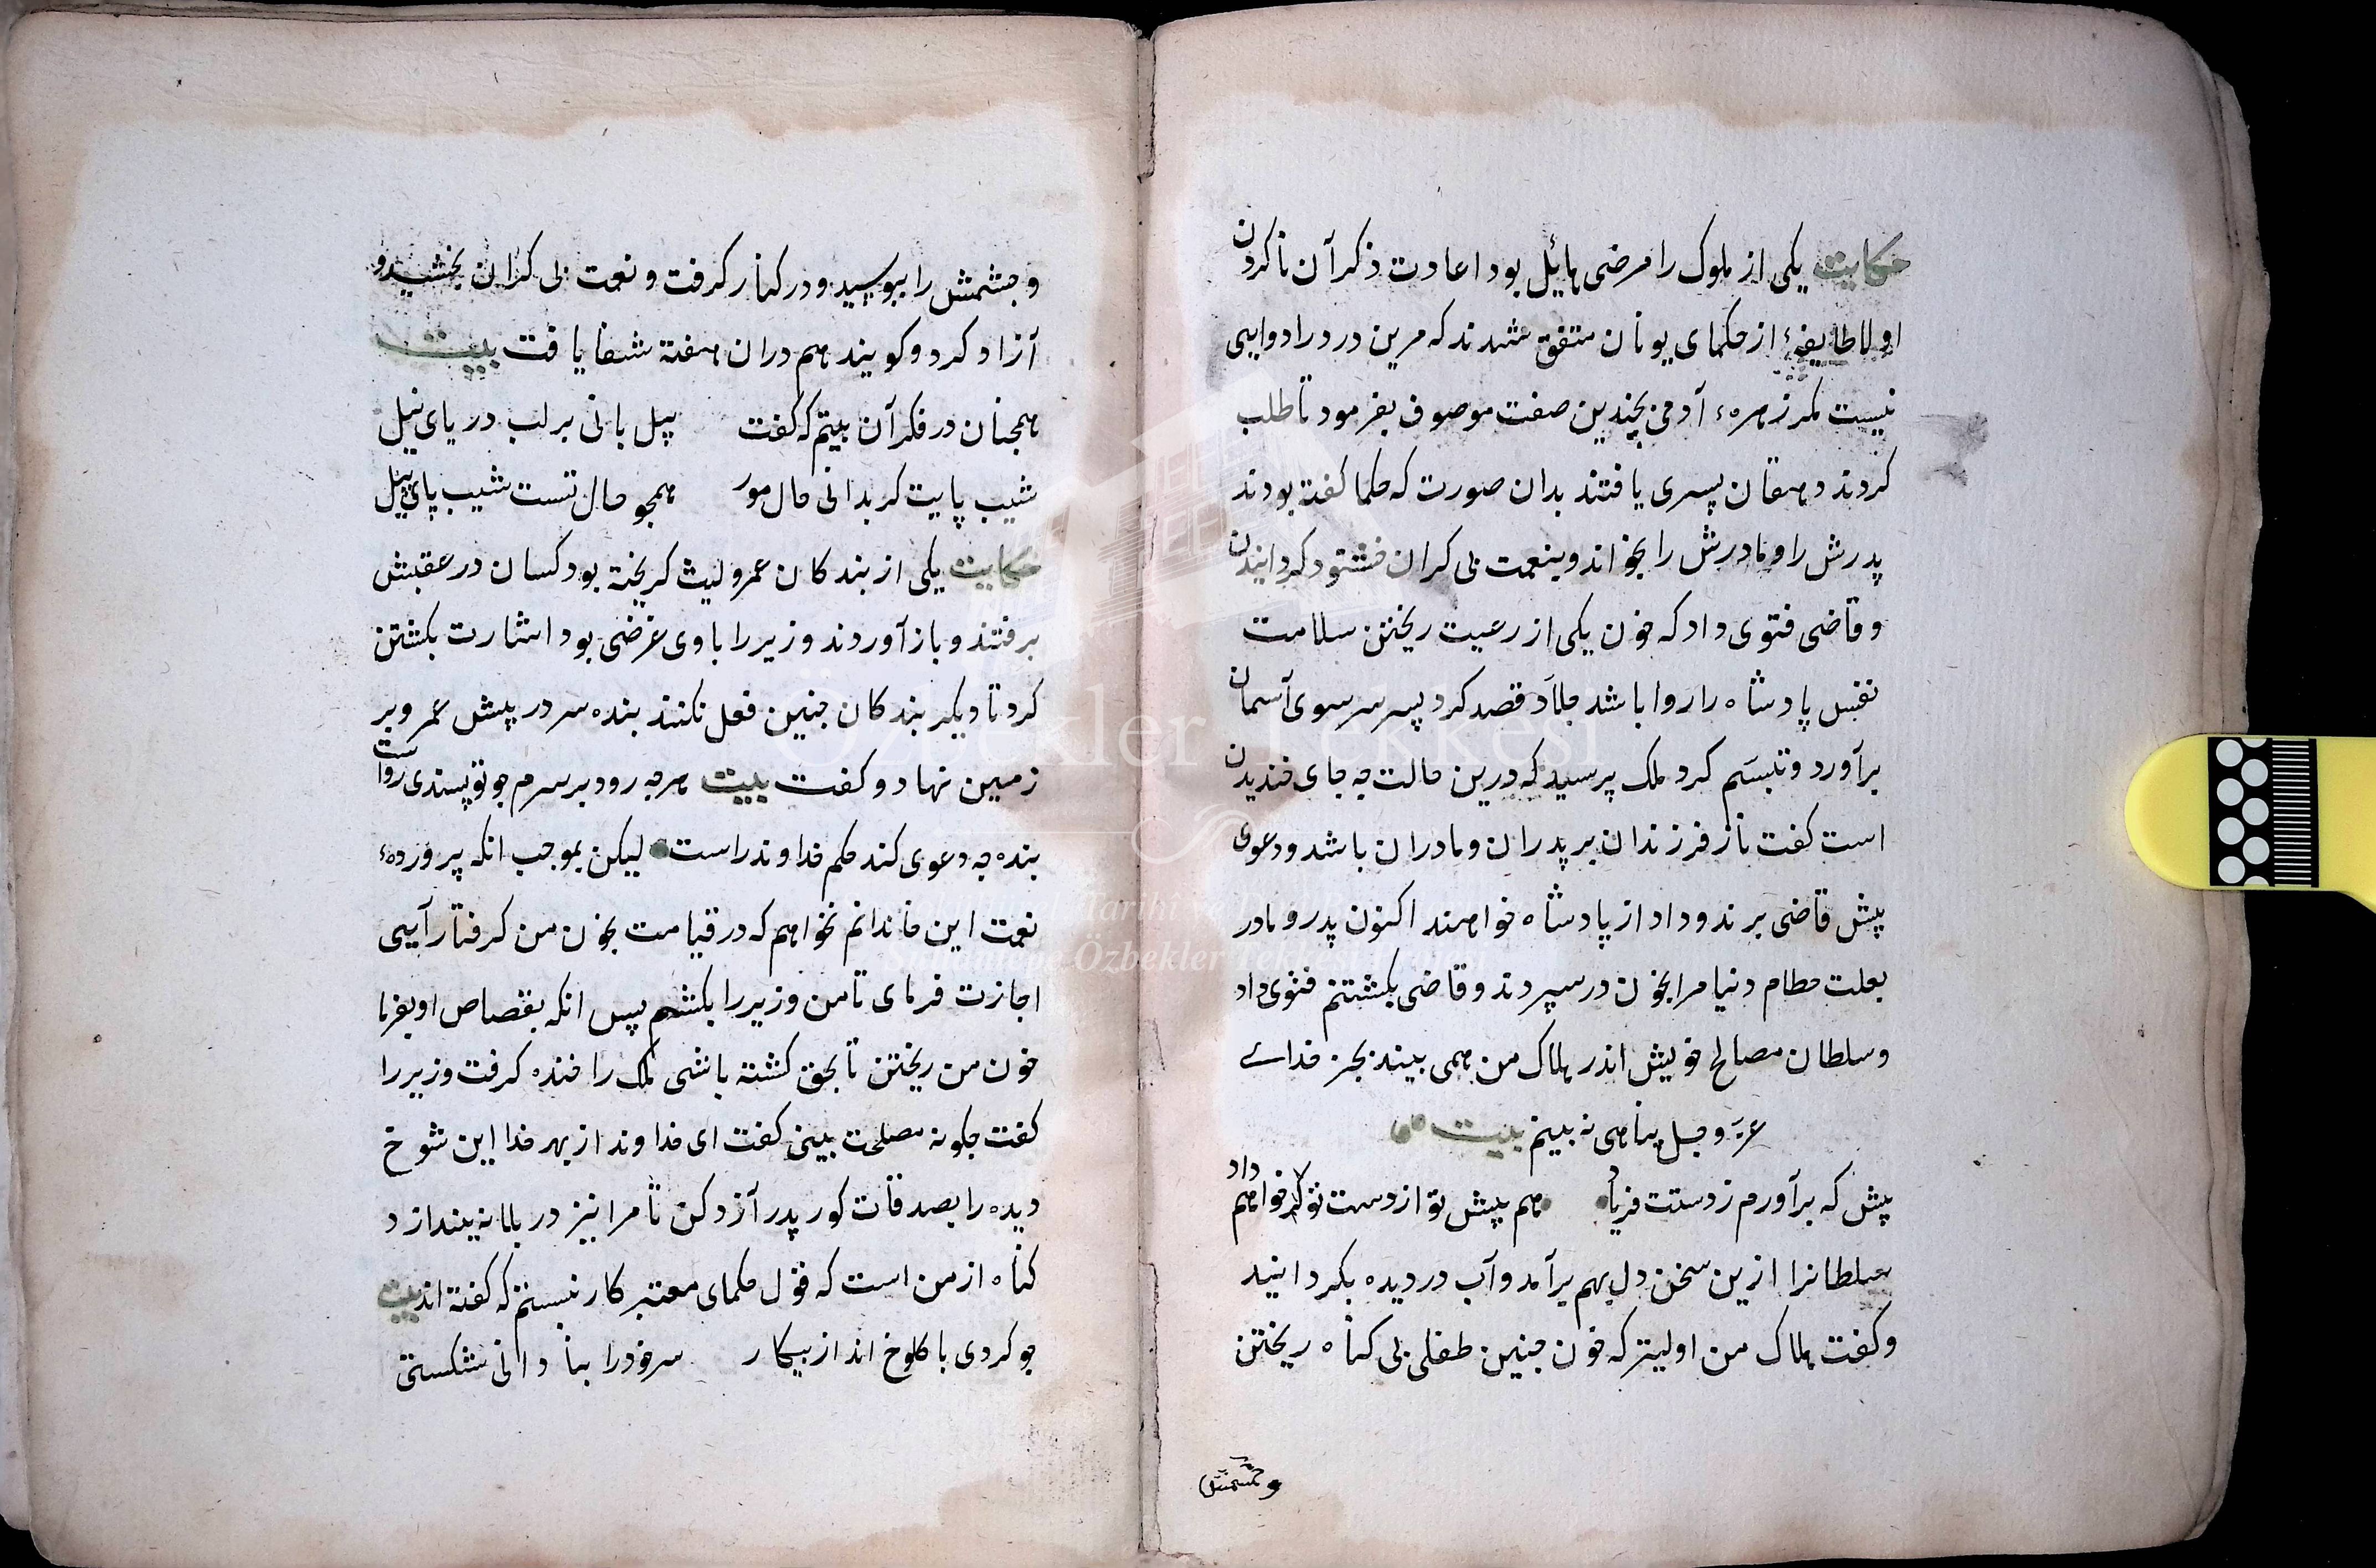 حکایت یکی از ملوک را مرضی هایٔل بود اعادت ذکر آن ناکردن
اولا طایفهٔ از حکمای یونان متفق شدند که مرین درد را دوایی
نیست مکر زهرهٔ آدمی بچندین صفت موصوف بفرمود تا طلب
کردند دهقان پسری یافتند بدان صورت که حکما کفته بودند
پدرش را و مادرش را بخواند و بنعمت بی کران خشنود کردانیدن
و قاضی فتوی داد که خون یکی از رعیت ریختن سلامت
نفس پادشاه را روا باشد جلاد قصد کرد پسر سر سوی آسمان
برآورد و تبسم کرد ملک پرسید که درین حالت چه جای خندیدن
است کفت ناز فرزندان بر پدران و مادران باشد و دعوی
پیش قاضی برند و داد از پادشاه خواهند اکنون پدر و مادر
بعلت حطام دنیا مرا بخون در سپردند و قاضی بکشتنم فتوی داد
و سلطان مصالح خویش اندر هلاک من همی بیند بجز خدای
عز و جل پناهی نه بینم بیت
پیش که برآورم ز دستت فریاد هم پیش تو از دست تو کر خواهم داد
سلطانرا ازین سخن دل بهم برآمد و آب در دیده بکردانید
و کفت هلاک من اولیتر که خون جنین طفلی بی کناه ریختن
و چشمش
و جشمش را ببوسید و در کنار کرفت و نعمت بی کران بخشید و
آزاد کرد و کویند هم دران هفته شفا یافت بیت
همچنان در فکر آن بیتم که کفت پیل بانی بر لب دریای نیل
شیب پایت کر بدانی حال مور همچو حال تست شیب پای پیل
حکایت یکی از بندکان عمرو لیث کریخته بود کسان در عقبش
برفتند و باز آوردند وزیر را با وی غرضی بود اشارت بکشتن
کرد تا دیکر بندکان جنین فعل نکنند بنده سر در پیش عمرو بر
زمین نهاد و کفت بیت هرچه رود بر سرم جو تو پسندی رواست
بنده چه دعوی کند حکم خداوند راست لیکن بموجب انکه پروردهٔ
نعمت این خاندانم نخواهم که در قیامت بخون من کرفتار آیی
اجازت فرمای تا من وزیر را بکشم پس انکه بقصاص او بفرما
خون من ریختن تا بحق کشته باشی ملک را خنده کرفت وزیر را
کفت جکونه مصلحت بینی کفت ای خداوند از بهر خدا این شوخ
دیده را بصدقات کور پدر آزد کن تا مرا نیز در بلا نه بیندازد
کناه از من است که قول حکمای معتبر کار نبستم که کفته اند بیت
جو کردی با کلوخ انداز پیکار سر خود را بنادانی شکستی